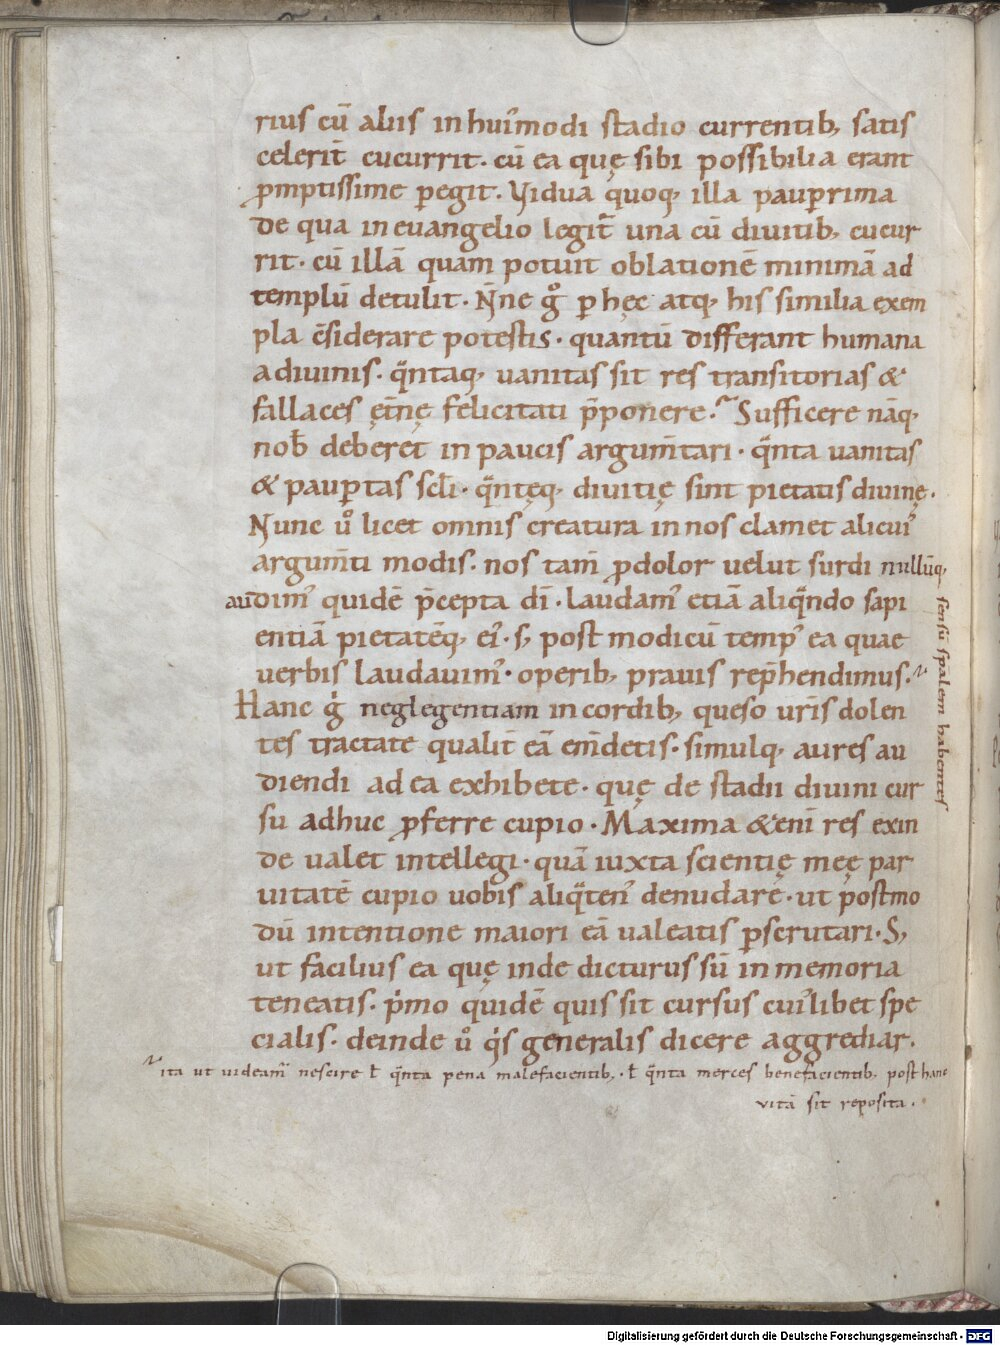 rius cū aliis in hui᷒modi stadio currentib; satis
celerit̄ cucurrit. cū ea quę sibi possibilia erant
ꝓmptissime ꝑegit. Vidua quoq; illa pauꝑrima
de qua in euangelio legit̄ una cū diuitib; cucur
rit. cū illā quam potuit oblationē minimā ad
templū detulit. Nn̄e gͦ ꝑ hęc atq; his similia exem
pla c̄siderare potestis. quantū differant humana
a diuinis. qᵃntaq; uanitas sit res transitorias &
fallaces ęt̄nę felicitati p̄ponere. Sufficere nāq;
nob̄ deberet in paucis argum̄tari. qᵃnta uanitas
& pauꝑtas scl̄i. qᵃntęq; diuitię sint pietatis diuinę.
Nunc uͦ licet omnis creatura in nos clamet alicui᷒
argum̄ti modis. nos tam̄ ꝓdolor uelut surdi nullūq;
sensū sp̄alem habentes
audim᷒ quidē p̄cepta dī. laudam᷒ etiā aliqᵃndo sapi
entiā pietatēq; ei᷒. s; post modicū temp᷒ ea quae
uerbis laudauim᷒. operib; prauis rep̄hendimus.
Hanc gⁱ neglegentiam in cordib; queso ur̄is dolen
tes tractate qualit̄ eā em̄detis. simulq; aures au
diendi ad ea exhibete. quę de stadii diuini cur
su adhuc ꝓferre cupio. Maxima &eni᷒ res exin
de ualet intellegi. quā iuxta scientię meę par
uitatē cupio uobis aliqᵃten᷒ denudare. ut postmo
dū intentione maiori eā ualeatis ꝑscrutari. S;
ut facilius ea quę inde dicturus sū in memoria
teneatis. pⁱmo quidē quis sit cursus cui᷒libet spe
cialis. deinde uͦ qⁱs generalis dicere aggrediar.
ita ut uideam᷒ nescire ł qᵃnta pena malefacientib; . ł qᵃnta merces benefacientib; post hanc
uitā sit reposita.
Digitalisierung gefördert durch die Deutsche Forschungsgemeinschaft - DFG